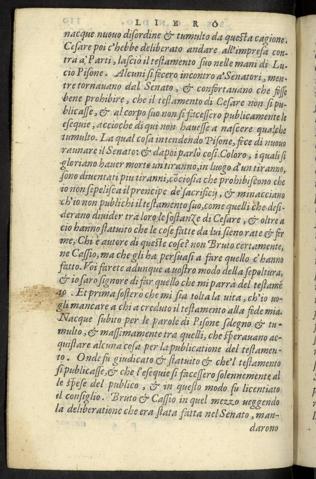 LIBRO
nacque nuouo disordine & tumulto da questa cagione.
Cesare poi c'hebbe deliberato andare all'impresa con-
tra à Parti, lasciò il testamento suo nelle mani di Lu-
cio Pisone. Alcuni si fecero incontro à Senatori, men-
tre tornauano dal Senato, & confortauano che fusse
bene prohibire, che il testamento di Cesare non si pu-
blicasse, & al corpo suo non si facessero publicamente le
esequie, accioche di qui non hauesse a nascere qualche
tumulto. La qual cosa intendendo Pisone, fece di nuouo
raunare il Senato: & dapoi parlò cosi. Coloro, i quali si
gloriano hauer morto un tiranno, in luogo d'un tiranno,
sono diuentati piu tiranni, cōciosia che prohibiscono che
io non sepelisca il prencipe de' sacrificij, & minacciano
ch'io non publichi il testamento suo, come quelli che desi-
derano diuider tra loro le sostanze di Cesare, & oltre a
ciò hanno statuito che le cose fatte da lui sieno rate & fir
me, Chi è autore di queste cose? non Bruto certamente,
ne Cassio, ma che gli ha persuasi a fare quello c'hanno
fatto. Voi sarete adunque a uostro modo della sepoltura,
& io sarò signore di far quello che mi parrà del testamē
to. Et prima sosterrò che mi sia tolta la uita, ch'io uo-
gli mancare a chi a creduto il testamento alla fede mia.
Nacque subito per le parole di Pisone sdegno & tu-
multo, & massimamente tra quelli, che sperauano ac-
quistare alcuna cosa per la publicatione del testamen-
to. Onde fu giudicato & statuito & che'l testamento
si publicasse, & che l'esequie si facessero solennemente al
le spese del publico, & in questo modo fu licentiato
il consiglio. Bruto & Cassio in quel mezzo ueggendo
la deliberatione che era stata fatta nel Senato, man-
darono